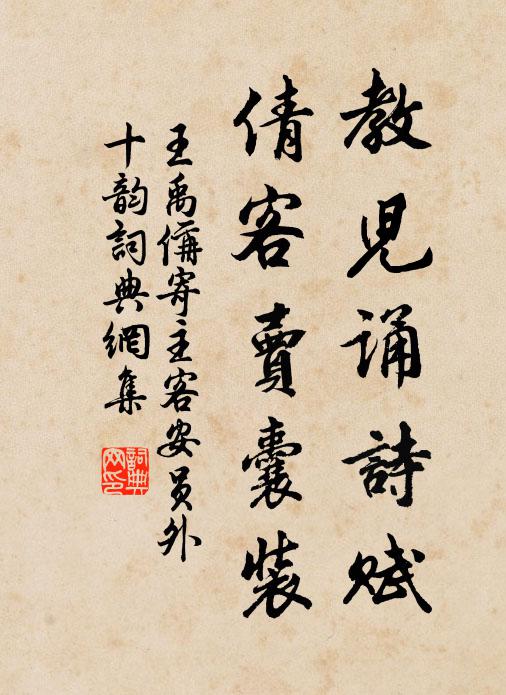 教兒誦詩賦
倩客賣囊裝
王禹偁寄主客安員外
十韵詞典網集
詞典
网印